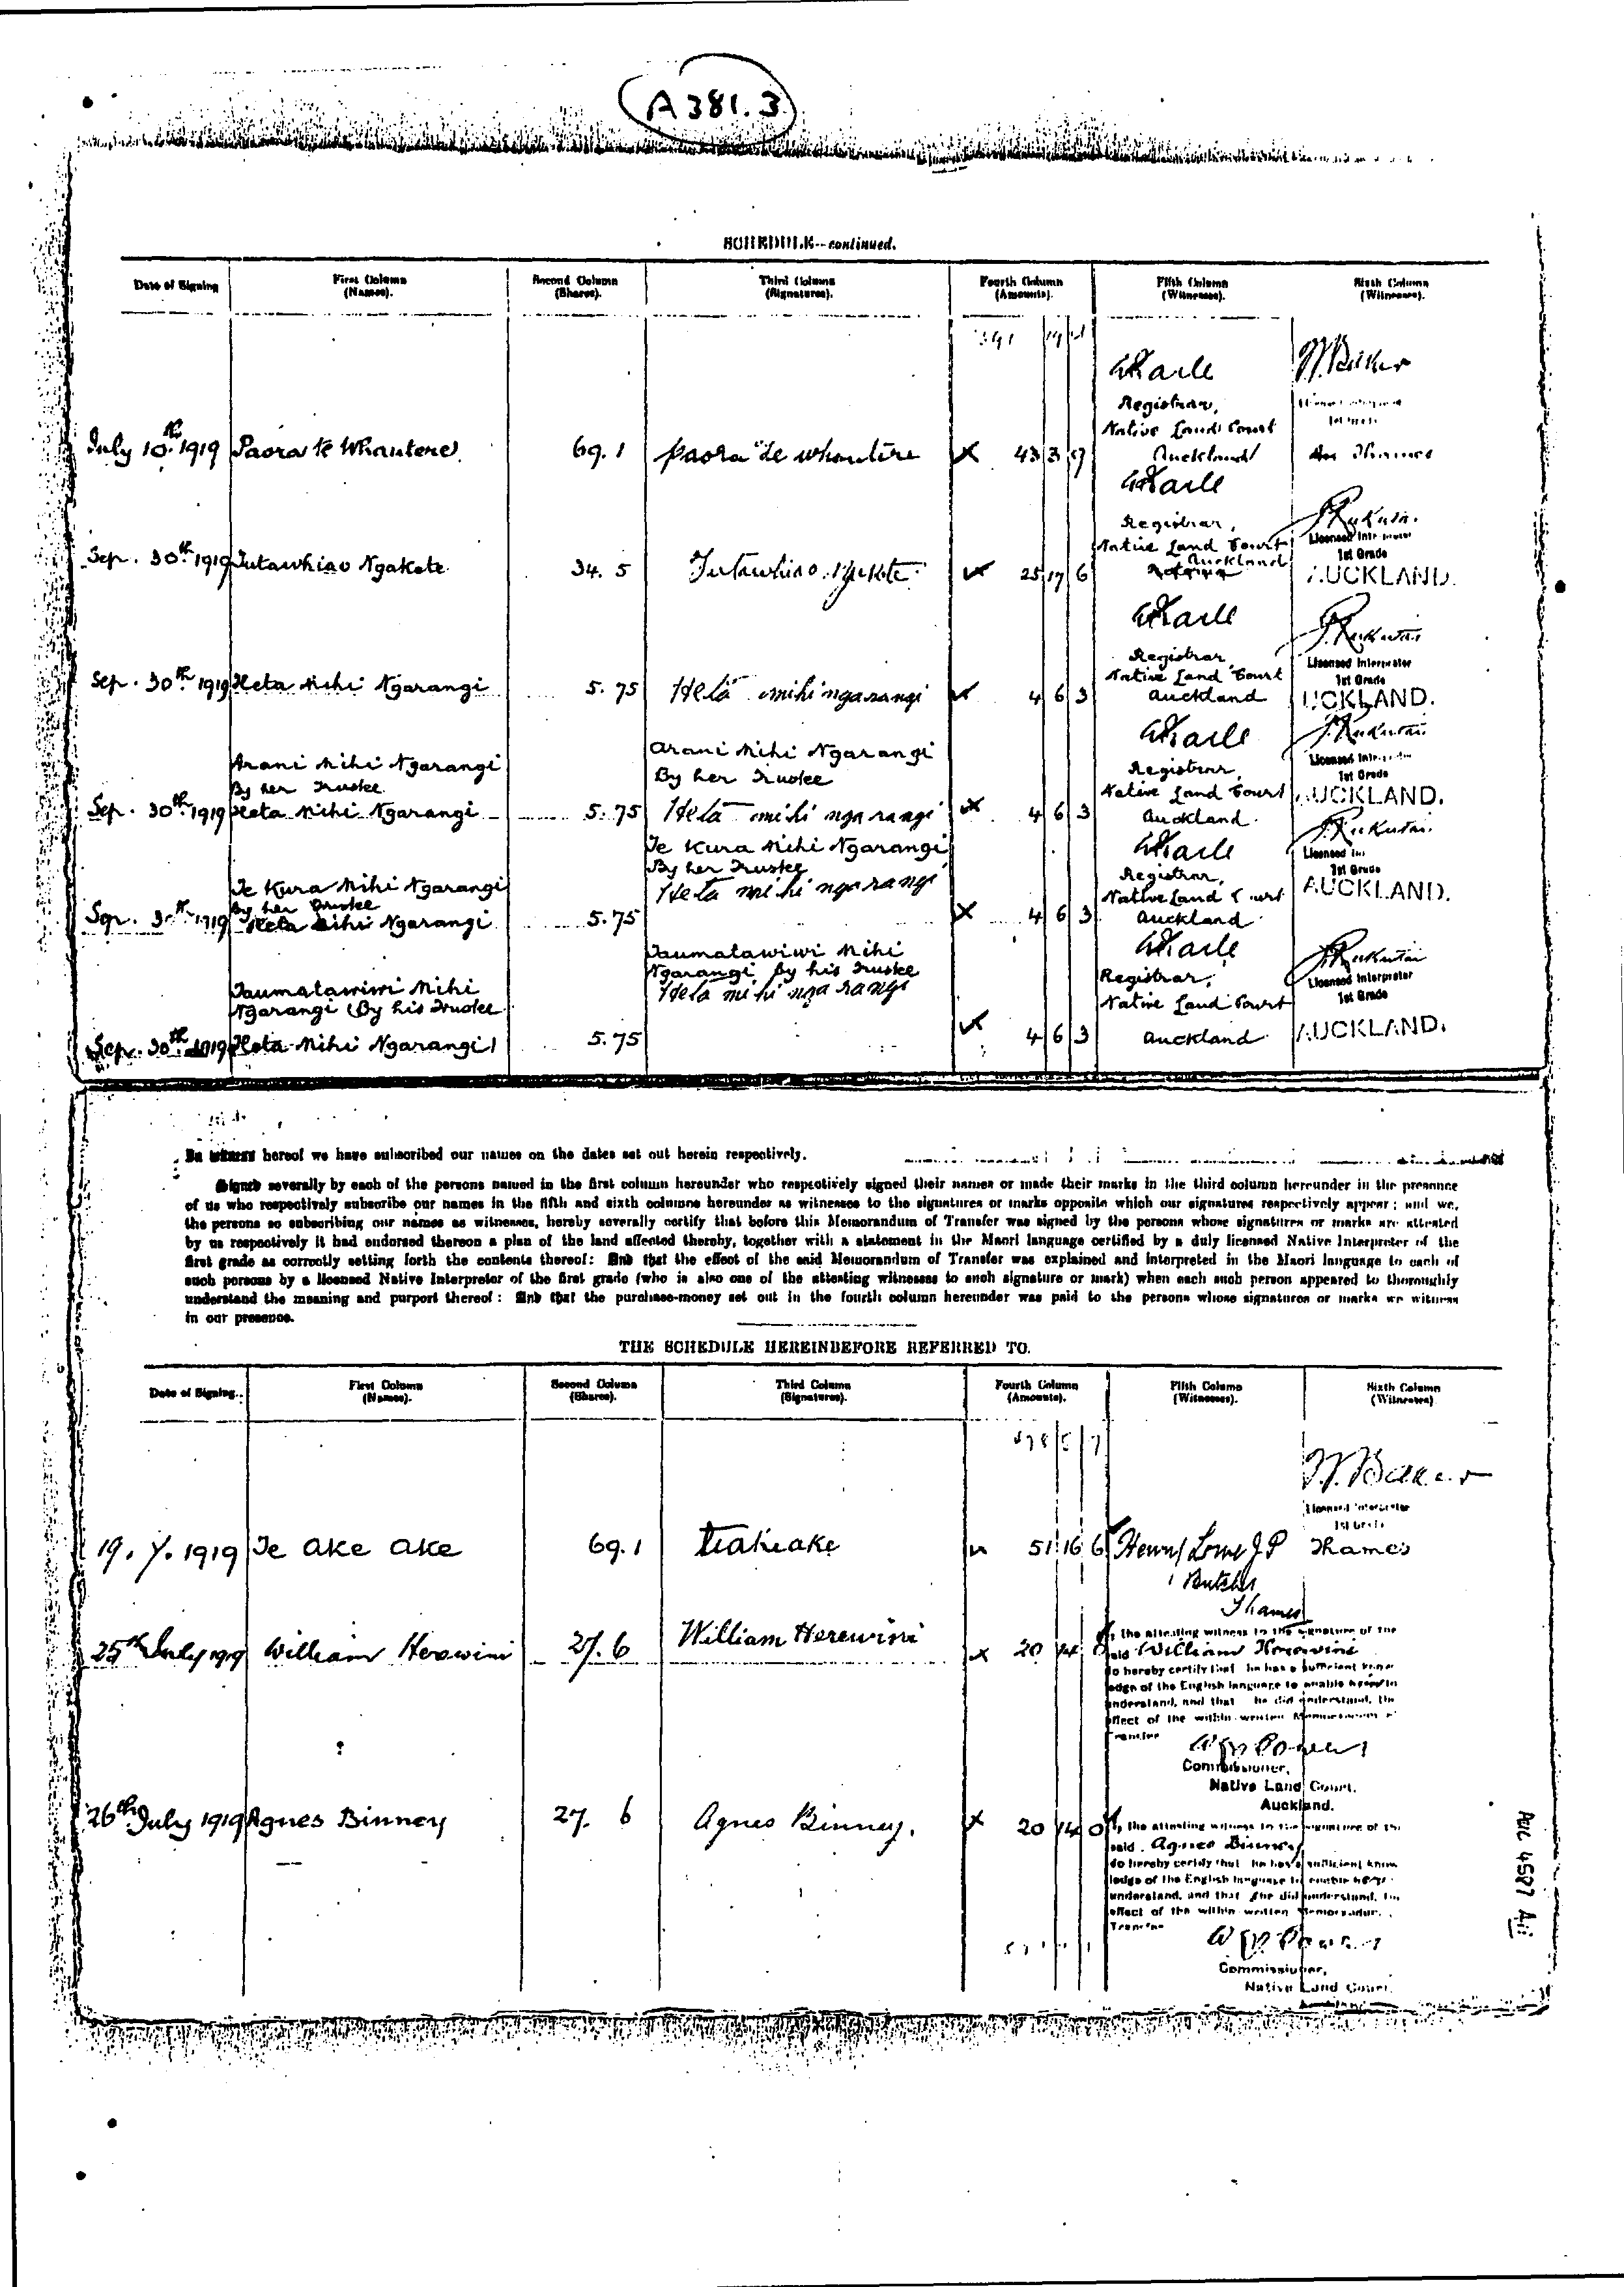 A381.3
SCHEDULE—continued.
Date of Signing
First Column
(Names).
Second Column
(Shares).
Third Column
(Signatures).
Fourth Column
(Amounts).
Fifth Column
(Witnesses).
Sixth Column
(Witnesses).
Registrar,
Native Land Court
July 10th 1919 Paora te Whautere 69.1 paora te whautere 43 3 9 Auckland Thames
Registrar,
Native Land Court
Licensed Interpreter
1st Grade
Sep. 30th 1919 Tutawhiao Ngakete 34.5 25 17 6 Auckland AUCKLAND.
Registrar
Native Land Court
Licensed Interpreter
1st Grade
Sep. 30th 1919 Heta Mihi Ngarangi 5.75 Heta mihi ngarangi 4 6 3 Auckland UCKLAND.
Arani Mihi Ngarangi
By her Trustee
Arani Mihi Ngarangi
By her Trustee
Registrar,
Native Land Court
1st Grade
AUCKLAND.
Sep. 30th 1919 Heta Mihi Ngarangi 5.75 Heta mihi ngarangi 4 6 3 Auckland
Te Kura Mihi Ngarangi
By her Trustee
Heta mihi ngarangi
Te Kura Mihi Ngarangi
By her Trustee
Registrar,
Native Land Court
1st Grade
AUCKLAND.
Sep. 30th 1919 Heta Mihi Ngarangi 5.75 4 6 3 Auckland
Taumatawiwi Mihi
Ngarangi By his Trustee
Heta mihi ngarangi
Taumatawiwi Mihi
Ngarangi (By his Trustee
Registrar,
Native Land Court
Licensed Interpreter
1st Grade
Sep. 30th 1919 Heta Mihi Ngarangi) 5.75 4 6 3 Auckland AUCKLAND.
In witness hereof we have subscribed our names on the dates set out herein respectively.
Signed severally by each of the persons named in the first column hereunder who respectively signed their names or made their marks in the third column hereunder in the presence
of us who respectively subscribe our names in the fifth and sixth columns hereunder as witnesses to the signatures or marks opposite which our signatures respectively appear; and we,
the persons so subscribing our names as witnesses, hereby severally certify that before this Memorandum of Transfer was signed by the persons whose signatures or marks are attested
by us respectively it had endorsed thereon a plan of the land affected thereby, together with a statement in the Maori language certified by a duly licensed Native Interpreter of the
first grade as correctly setting forth the contents thereof: And that the effect of the said Memorandum of Transfer was explained and interpreted in the Maori language to each of
such persons by a licensed Native Interpreter of the first grade (who is also one of the attesting witnesses to such signature or mark) when each such person appeared to thoroughly
understand the meaning and purport thereof: And that the purchase-money set out in the fourth column hereunder was paid to the persons whose signatures or marks we witness
in our presence.
THE SCHEDULE HEREINBEFORE REFERRED TO.
Date of Signing.
First Column
(Names).
Second Column
(Shares).
Third Column
(Signatures).
Fourth Column
(Amounts).
Fifth Column
(Witnesses).
Sixth Column
(Witnesses)
Licensed Interpreter
1st Grade
19. 7. 1919 Te Ake Ake 69.1 teakeake 51 16 6 Henry Lowe J.P Thames
Butcher
Thames
25th July 1919 William Herewini 27.6 William Herewini 20 14 0
the attesting witness to the signature of the
said William Herewini
do hereby certify that he has a sufficient know
ledge of the English language to enable
understand, and that he did understand, the
effect of the within written Memorandum of
Transfer
Commissioner,
Native Land Court.
Auckland.
26th July 1919 Agnes Binney 27.6 Agnes Binney. 20 14 0
the attesting witness to the signature of the
said Agnes Binney
do hereby certify that he has a sufficient know
ledge of the English language to enable
understand, and that she did understand, the
effect of the within written Memorandum
Commissioner,
Native Land Court